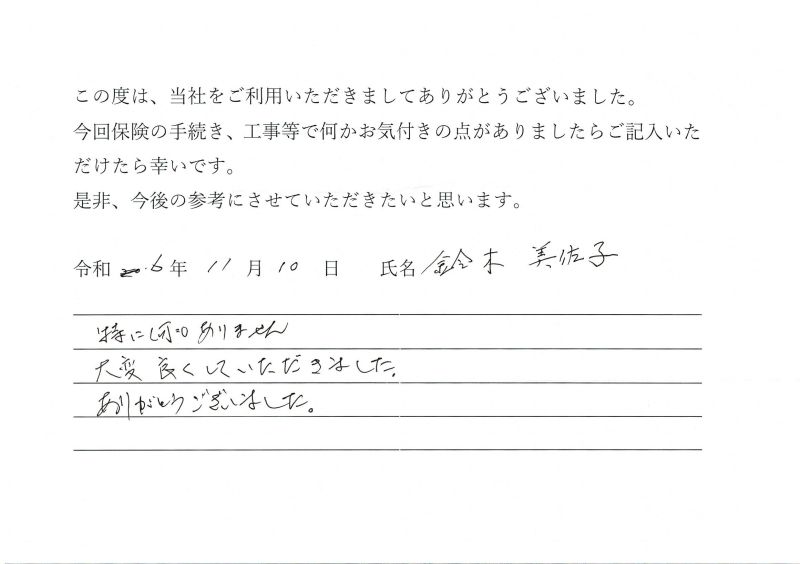 この度は、当社をご利用いただきましてありがとうございました。
今回保険の手続き、工事等で何かお気付きの点がありましたらご記入いた
だけたら幸いです。
是非、今後の参考にさせていただきたいと思います。
令和 6年 11月 10日 氏名 鈴木 美佐子
特に何もありません
大変良くしていただきました。
ありがとうございました。